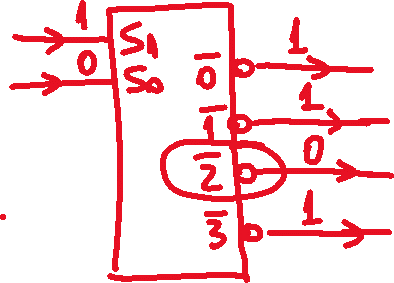 1
S1
0
S0
0̅ 1
1̅ 1
2̅ 0
3̅ 1